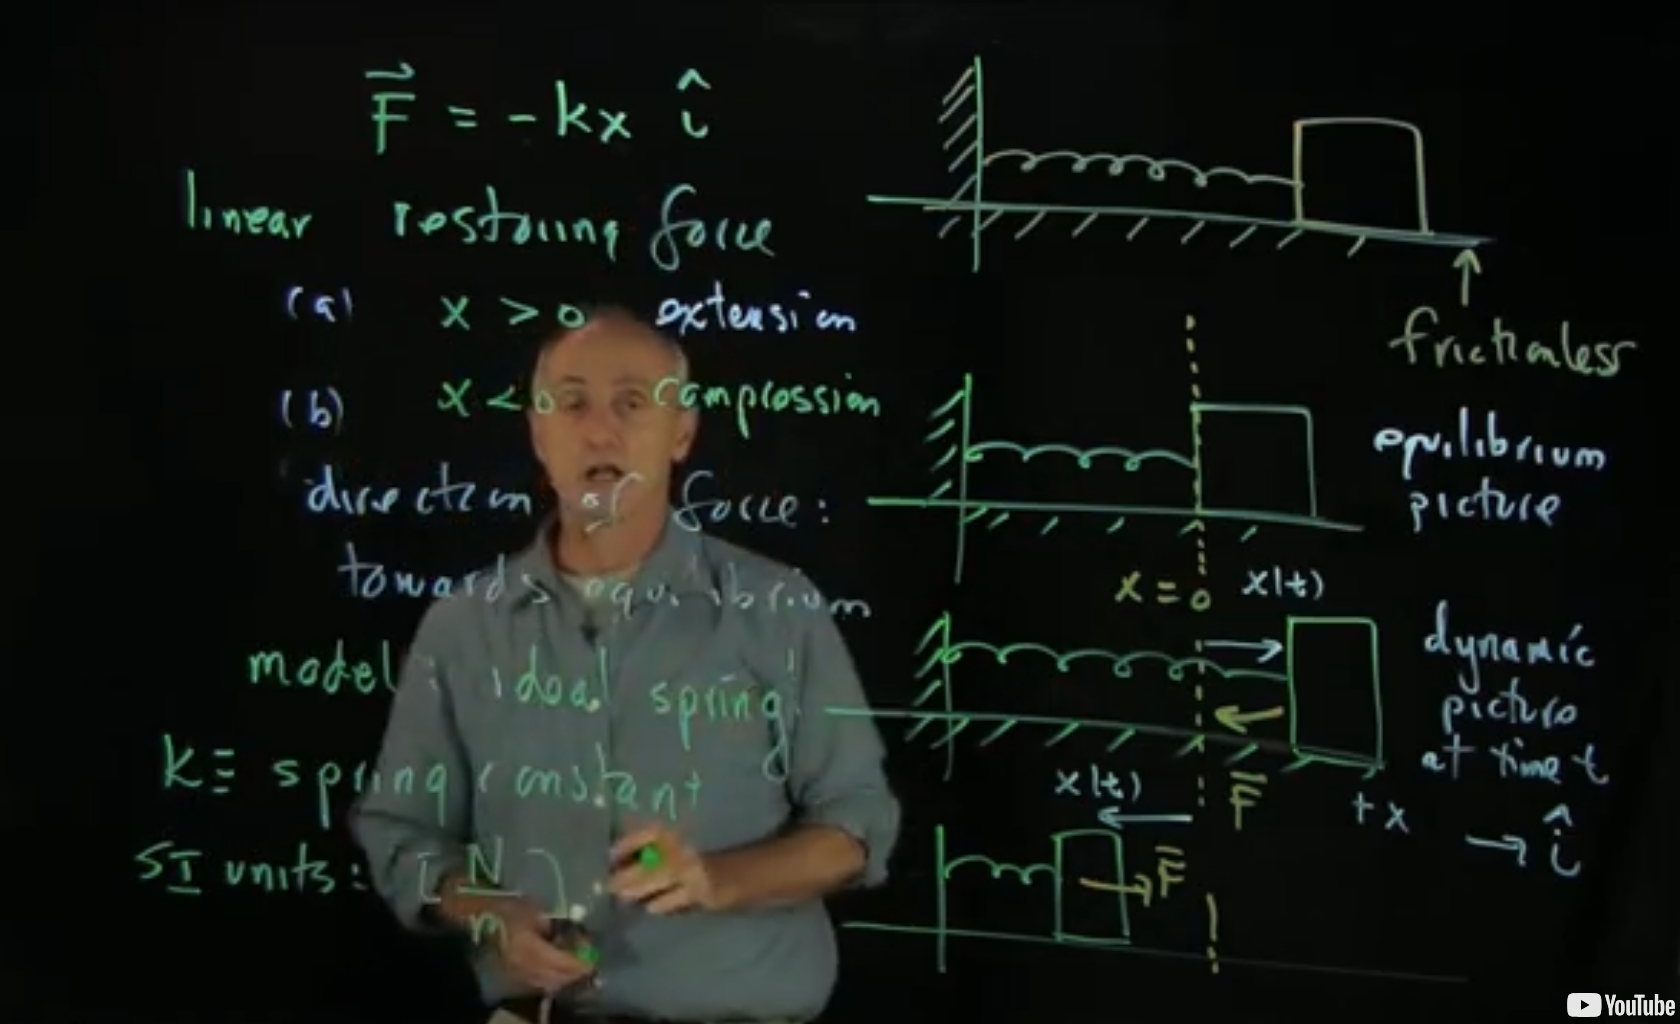 F = -kx î
linear restoring force
(a) x > 0 extension
(b) x < 0 compression
direction of force:
towards equilibrium
model: ideal spring
k ≡ spring constant
SI units: [N/m]
frictionless
equilibrium
picture
x = 0
x(t)
dynamic
picture
at time t
F
+x
→ î
x(t)
F
YouTube